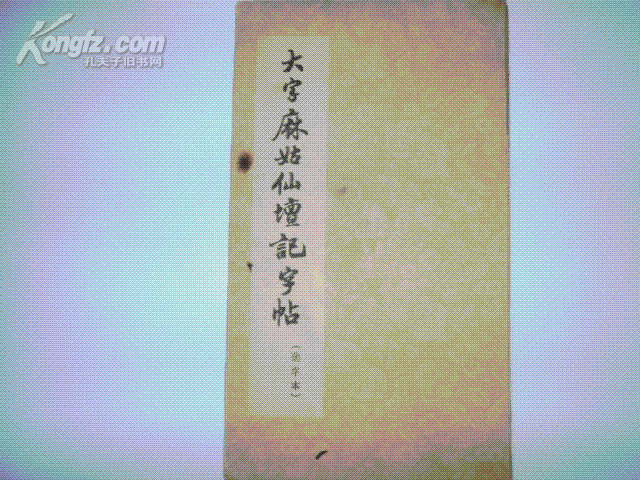 Kongfz.com
孔夫子旧书网
大字麻姑仙壇記字帖